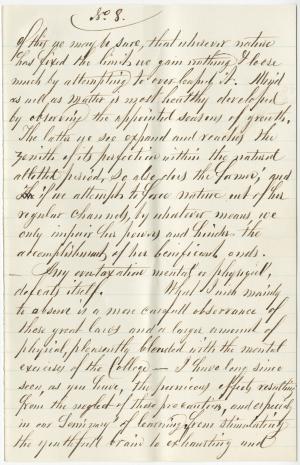 No. 8.
of this ye may be sure, that wherever nature
has fixed the limits we gain nothing & loose
much by attempting to overleap it. Mind
as well as matter is most healthy developed
by observing the appointed seasons of growth.
The latter ye see expand and reaches the
zenith of its perfection within the natural
allotted period, so also does the former, and
if we attempt to force nature out of her
regular channels, by whatever means, we
only impair her powers and hinder the
accomplishment of her beneficent ends.
— Any overtaxation mental or physical,
defeats itself. What I wish mainly
to observe is a more carefull observance of
these great laws and a larger amount of
physical, pleasantly blended with the mental
exercises of the College — I have long since
seen, as you have, the pernicious effects resulting
from the neglect of these precautions, and especially
in our Seminary of learning from stimulating
the youthfull brain to exhausting and